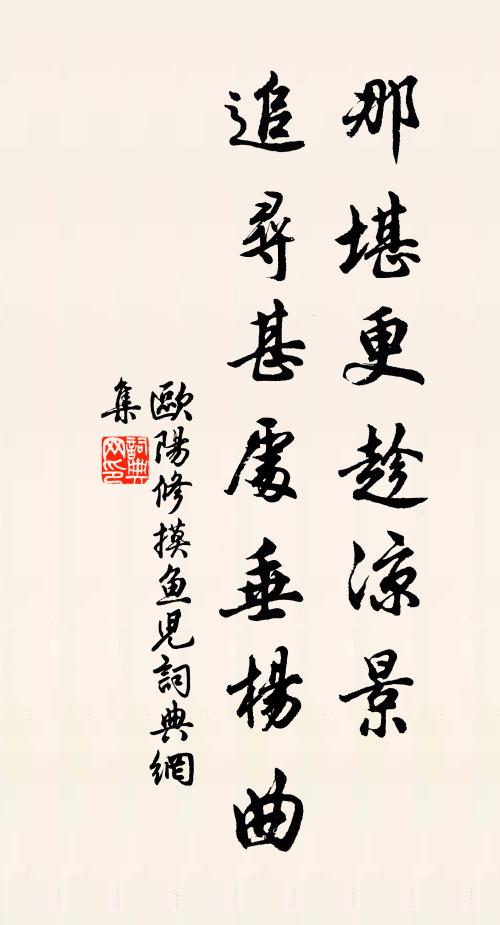 那堪更趁涼景
追尋甚處垂楊曲
歐陽修摸魚児詞典網
集
詞典網印